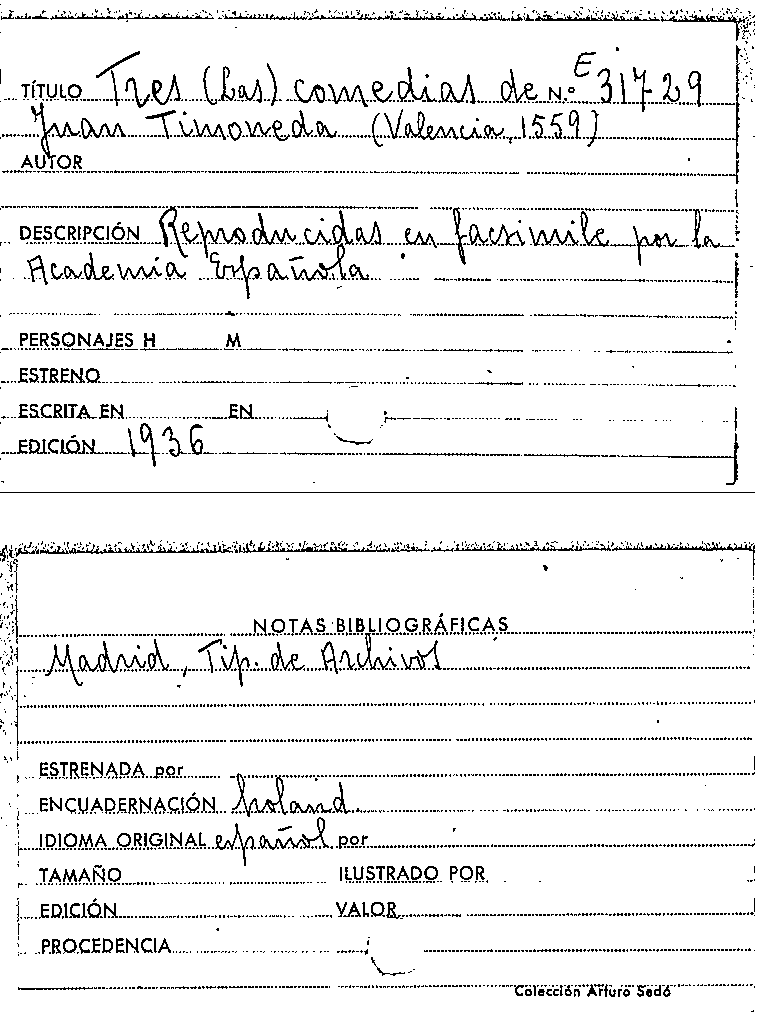 TÍTULO Tres (Las) comedias de N.º E 31729
Juan Timoneda (Valencia, 1559)
AUTOR
DESCRIPCIÓN Reproducidas en facsimile por la
Academia Española
PERSONAJES H M
ESTRENO
ESCRITA EN EN
EDICIÓN 1936
NOTAS BIBLIOGRÁFICAS
Madrid, Tip. de Archivos
ESTRENADA por
ENCUADERNACIÓN holand.
IDIOMA ORIGINAL español por
TAMAÑO ILUSTRADO POR
EDICIÓN VALOR
PROCEDENCIA
Colección Arturo Sedó